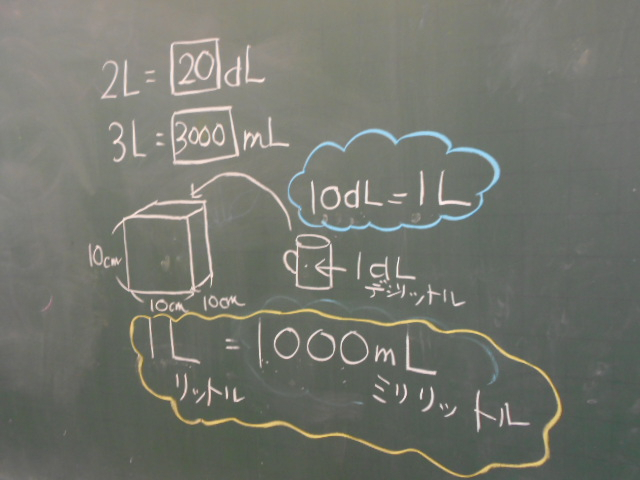 2L = 20 dL
3L = 3000 mL
10dL = 1L
10cm
10cm 10cm
1dL
デシリットル
1L = 1000mL
リットル ミリリットル